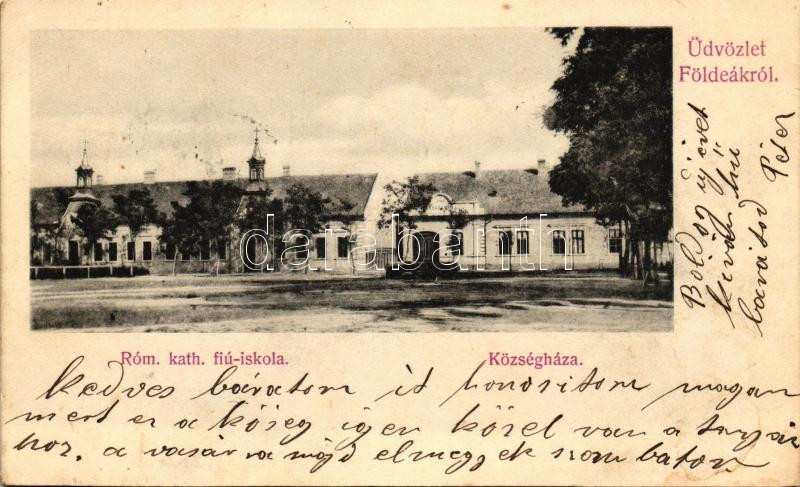 Üdvözlet
Földeákról.
Boldog új évet
kíván hű
barátod Péter
darabanth
Róm. kath. fiú-iskola.
Községháza.
Kedves barátom it honositom magam
mert er a kőseg igen közel van a
hoz. a vasárra majd elmegyek szombaton